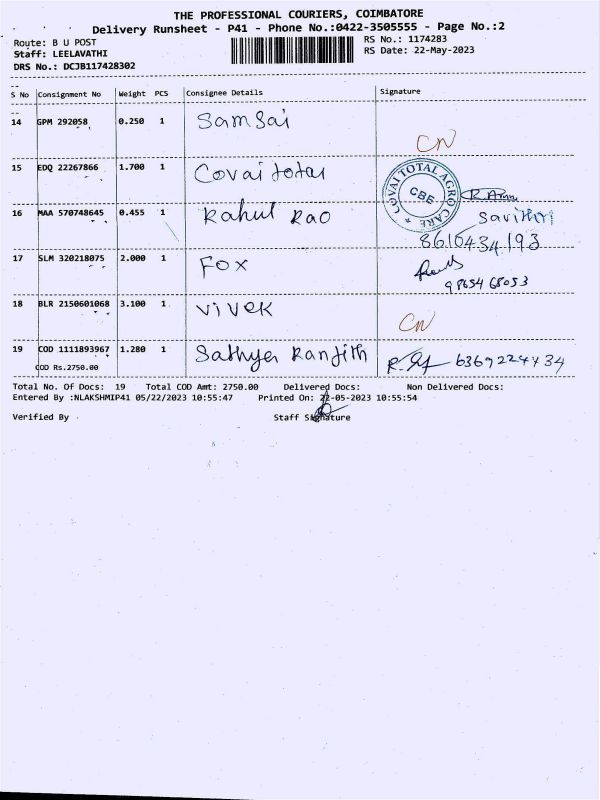 THE PROFESSIONAL COURIERS, COIMBATORE
Delivery Runsheet - P41 - Phone No.:0422-3505555 - Page No.:2
Route: B U POST
Staff: LEELAVATHI
DRS No.: DCJB117428302
RS No.: 1174283
RS Date: 22-May-2023
S No Consignment No Weight PCS Consignee Details Signature
14 GPM 292058 0.250 1 Samsai CN
15 EDQ 22267866 1.700 1 Covai total
COVAI TOTAL AGRO CARE * CBE
16 MAA 570748645 0.455 1 Rahul Rao Savithri
8610434193
17 SLM 320218075 2.000 1 Fox
9865468053
18 BLR 2150601068 3.100 1 Vivek CN
19 COD 1111893967 1.280 1 Sathya Ranjith 6369224434
COD Rs.2750.00
Total No. Of Docs: 19 Total COD Amt: 2750.00 Delivered Docs: Non Delivered Docs:
Entered By :NLAKSHMIP41 05/22/2023 10:55:47 Printed On: 22-05-2023 10:55:54
Verified By Staff Signature